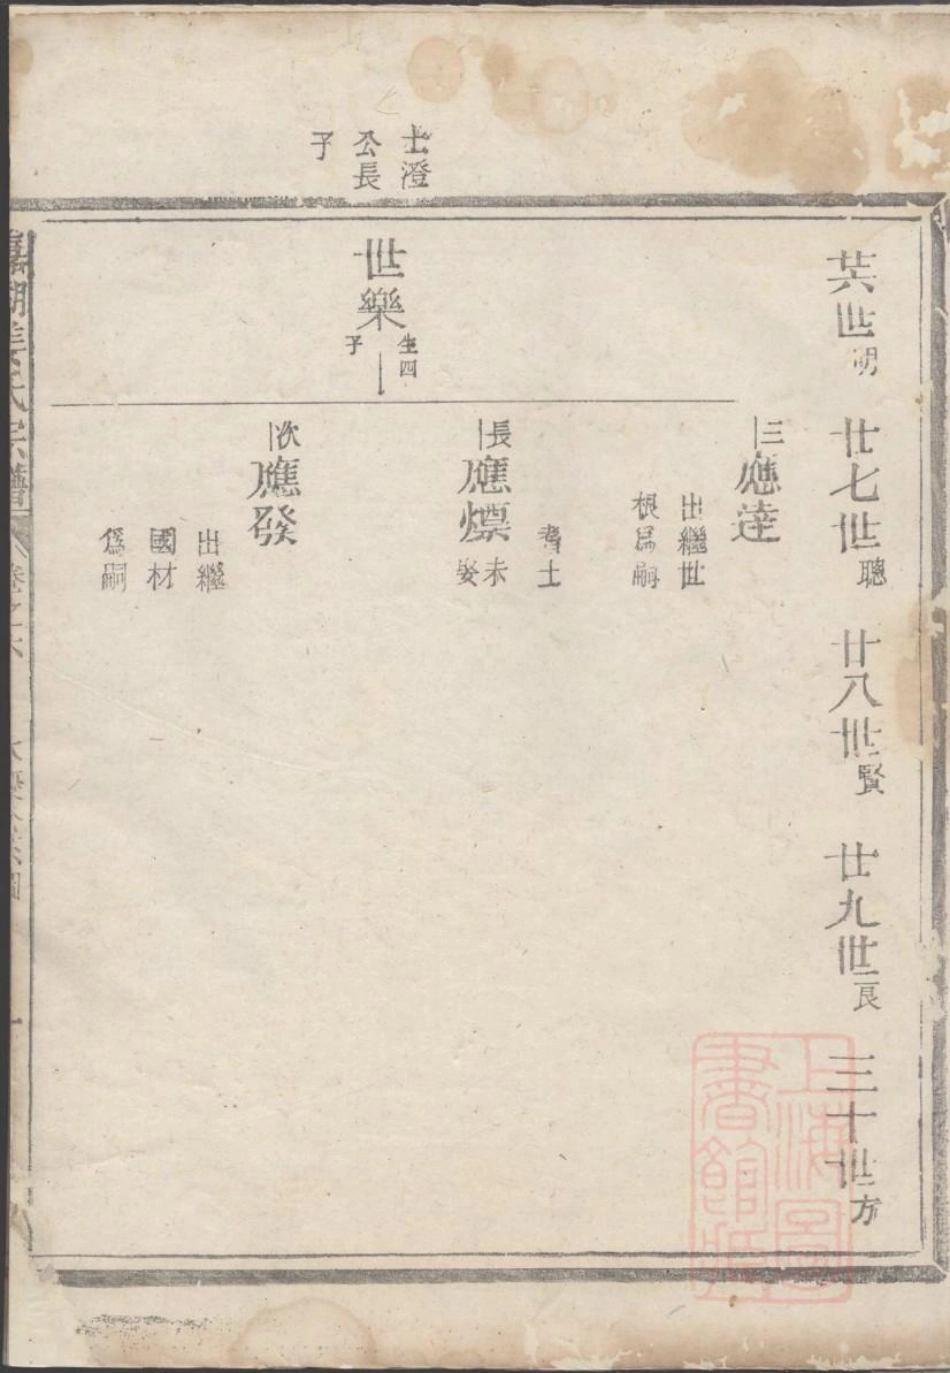 士澄
公長
子
廿七世聰
廿八世賢
廿九世良
三十世方
世樂
生四
子
三應達
出繼世
根爲嗣
秀士
長應熛
未
娶
次應發
出繼
國材
爲嗣
姜氏宗譜
卷之六
上海圖
書館藏